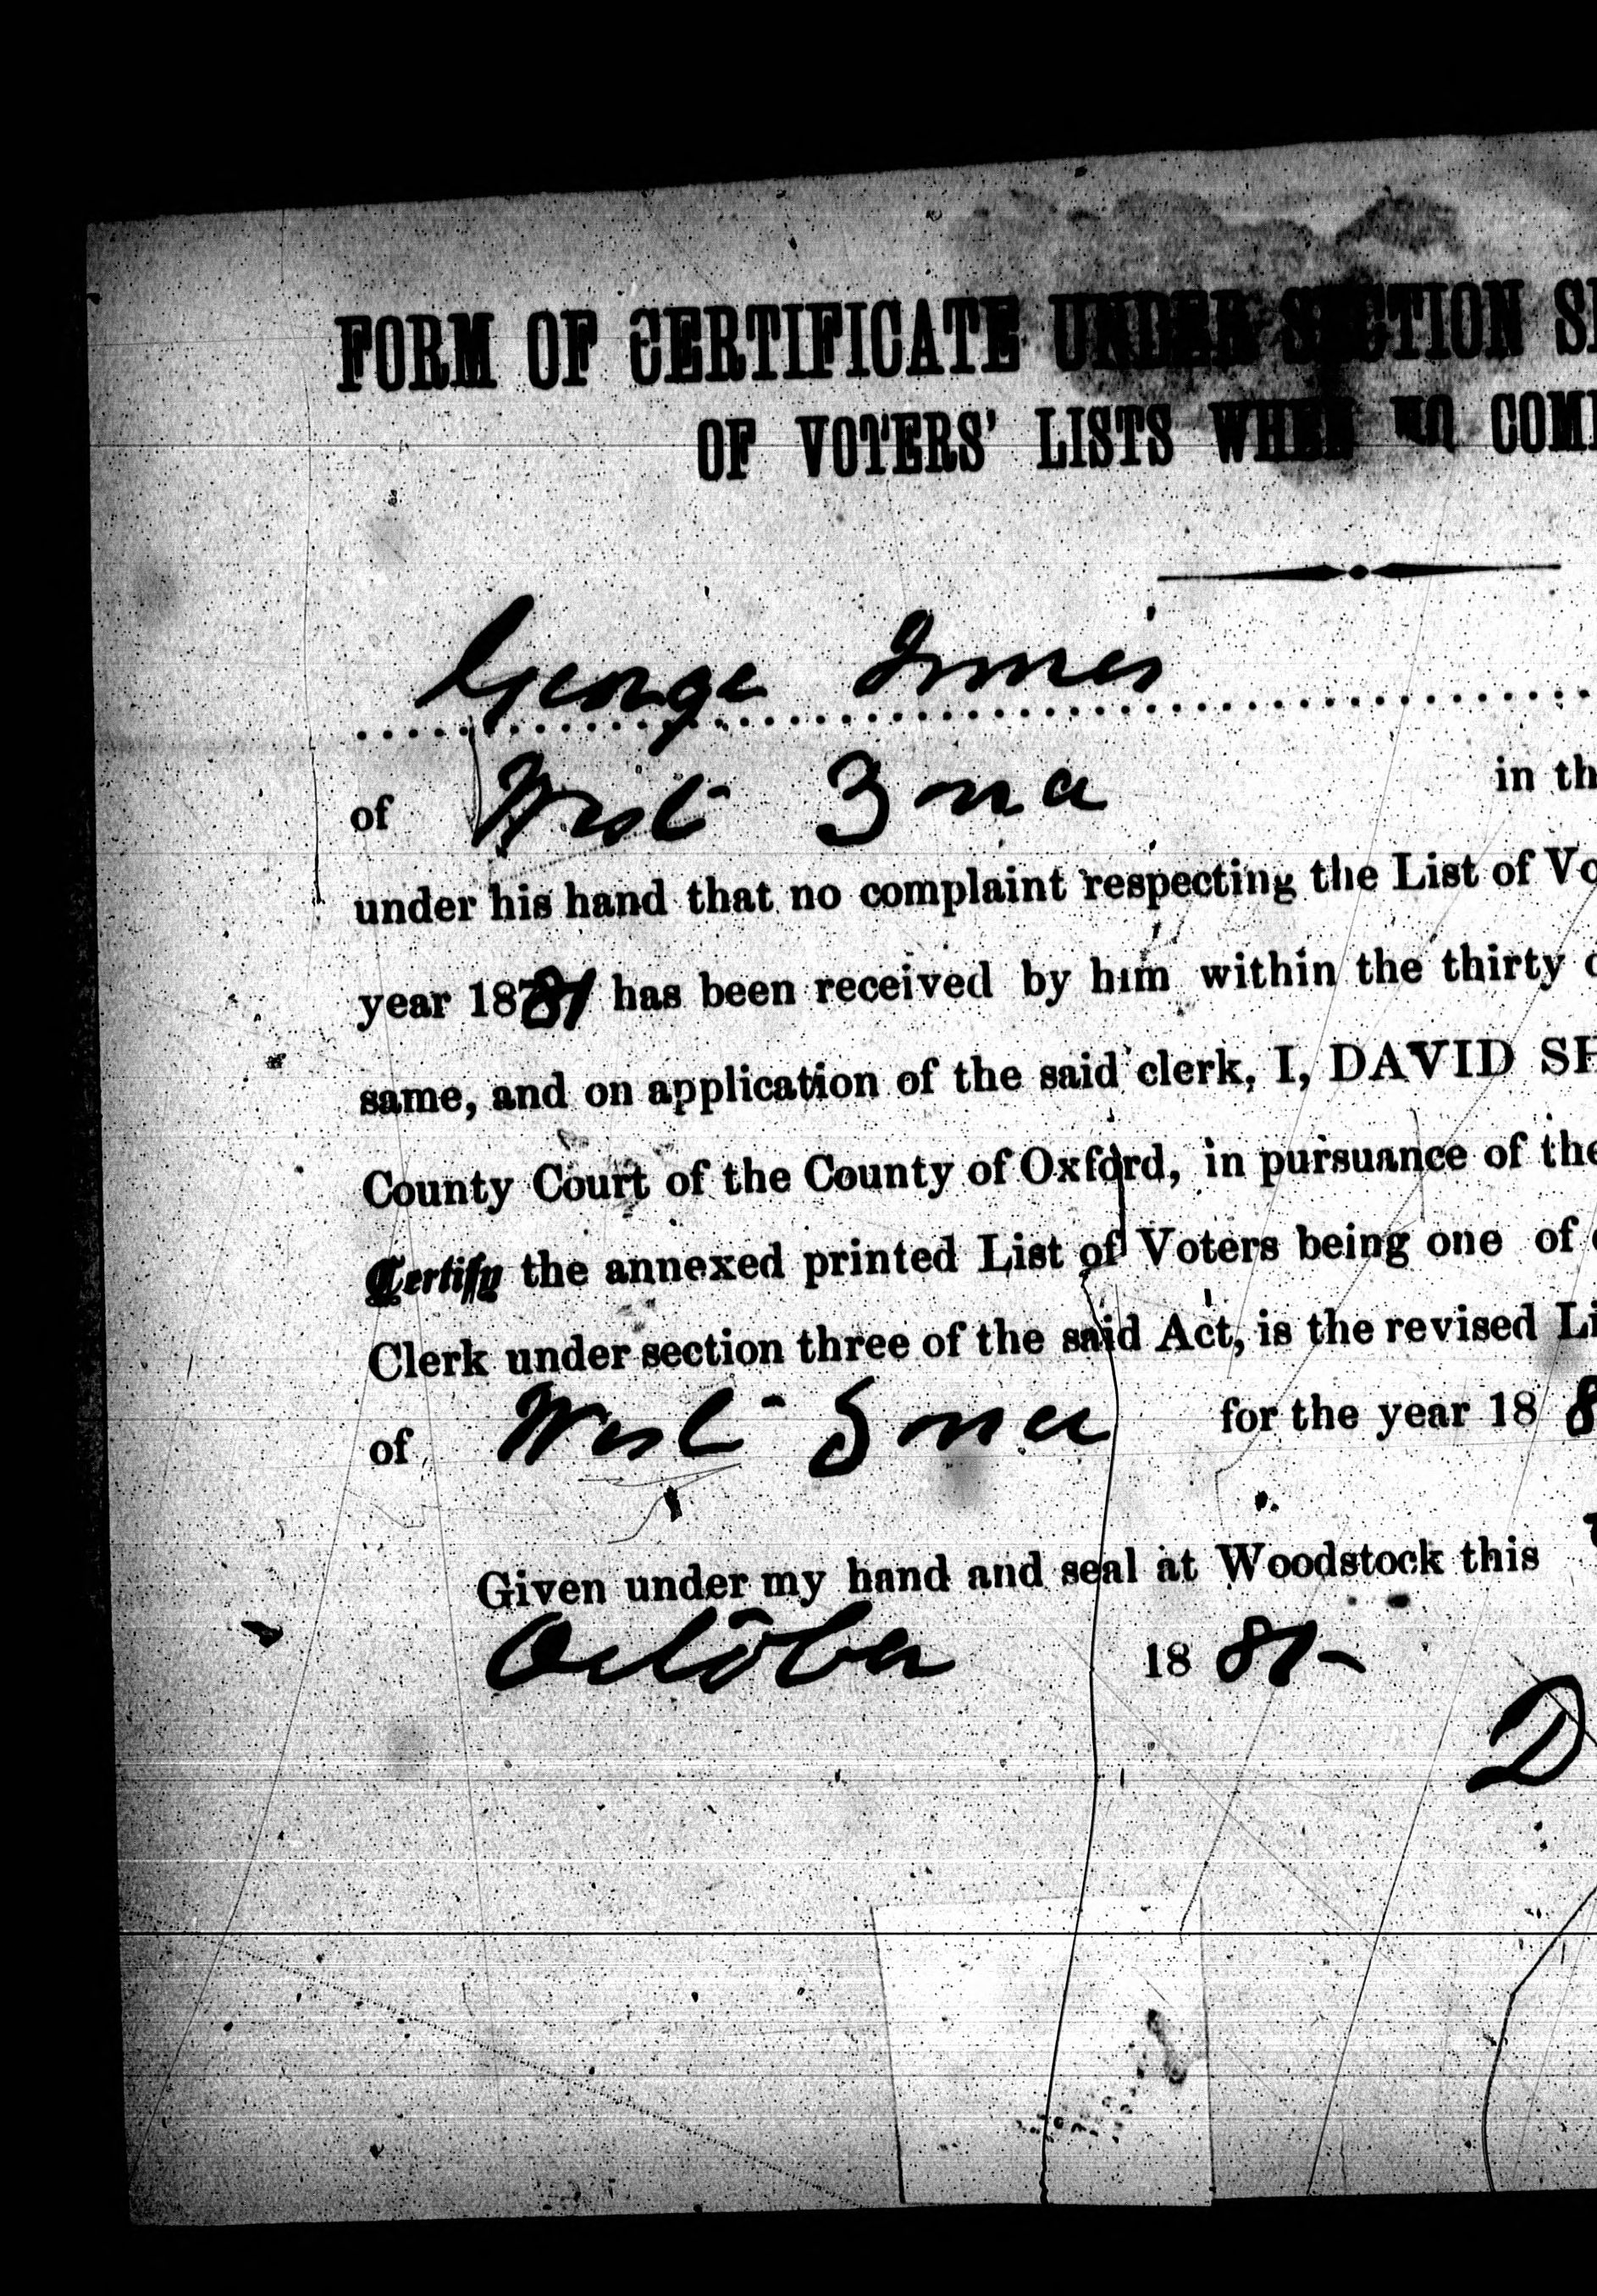 FORM OF CERTIFICATE UNDER SECTION SE
OF VOTERS' LISTS WHEN NO COMP
George Innes
of West Zorra in th
under his hand that no complaint respecting the List of Vo
year 1881 has been received by him within the thirty d
same, and on application of the said clerk, I, DAVID SH
County Court of the County of Oxford, in pursuance of the
Certify the annexed printed List of Voters being one of
Clerk under section three of the said Act, is the revised Li
of West Zorra for the year 18 8
Given under my hand and seal at Woodstock this
October 18 81
D